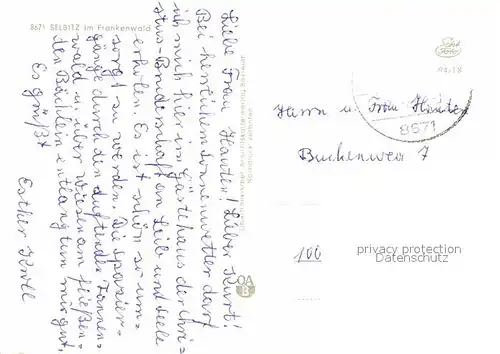 8671 SELBITZ im Frankenwald
Liebe Frau Hauter! Lieber Kurt!
Bei herrlichem Sonnenwetter darf
ich mich hier im Gästehaus der Chri=
stus-Bruderschaft an Leib und Seele
erholen. Es ist schön so um=
sorgt zu werden. Die Spazier=
gänge durch den duftenden Tannen=
wald u. über Wiesen am fließen=
den Bächlein entlang tun mir gut.
Es grüßt
Esther
Herrn u. Frau
8571
Buchenweg 7
100
privacy protection
Datenschutz